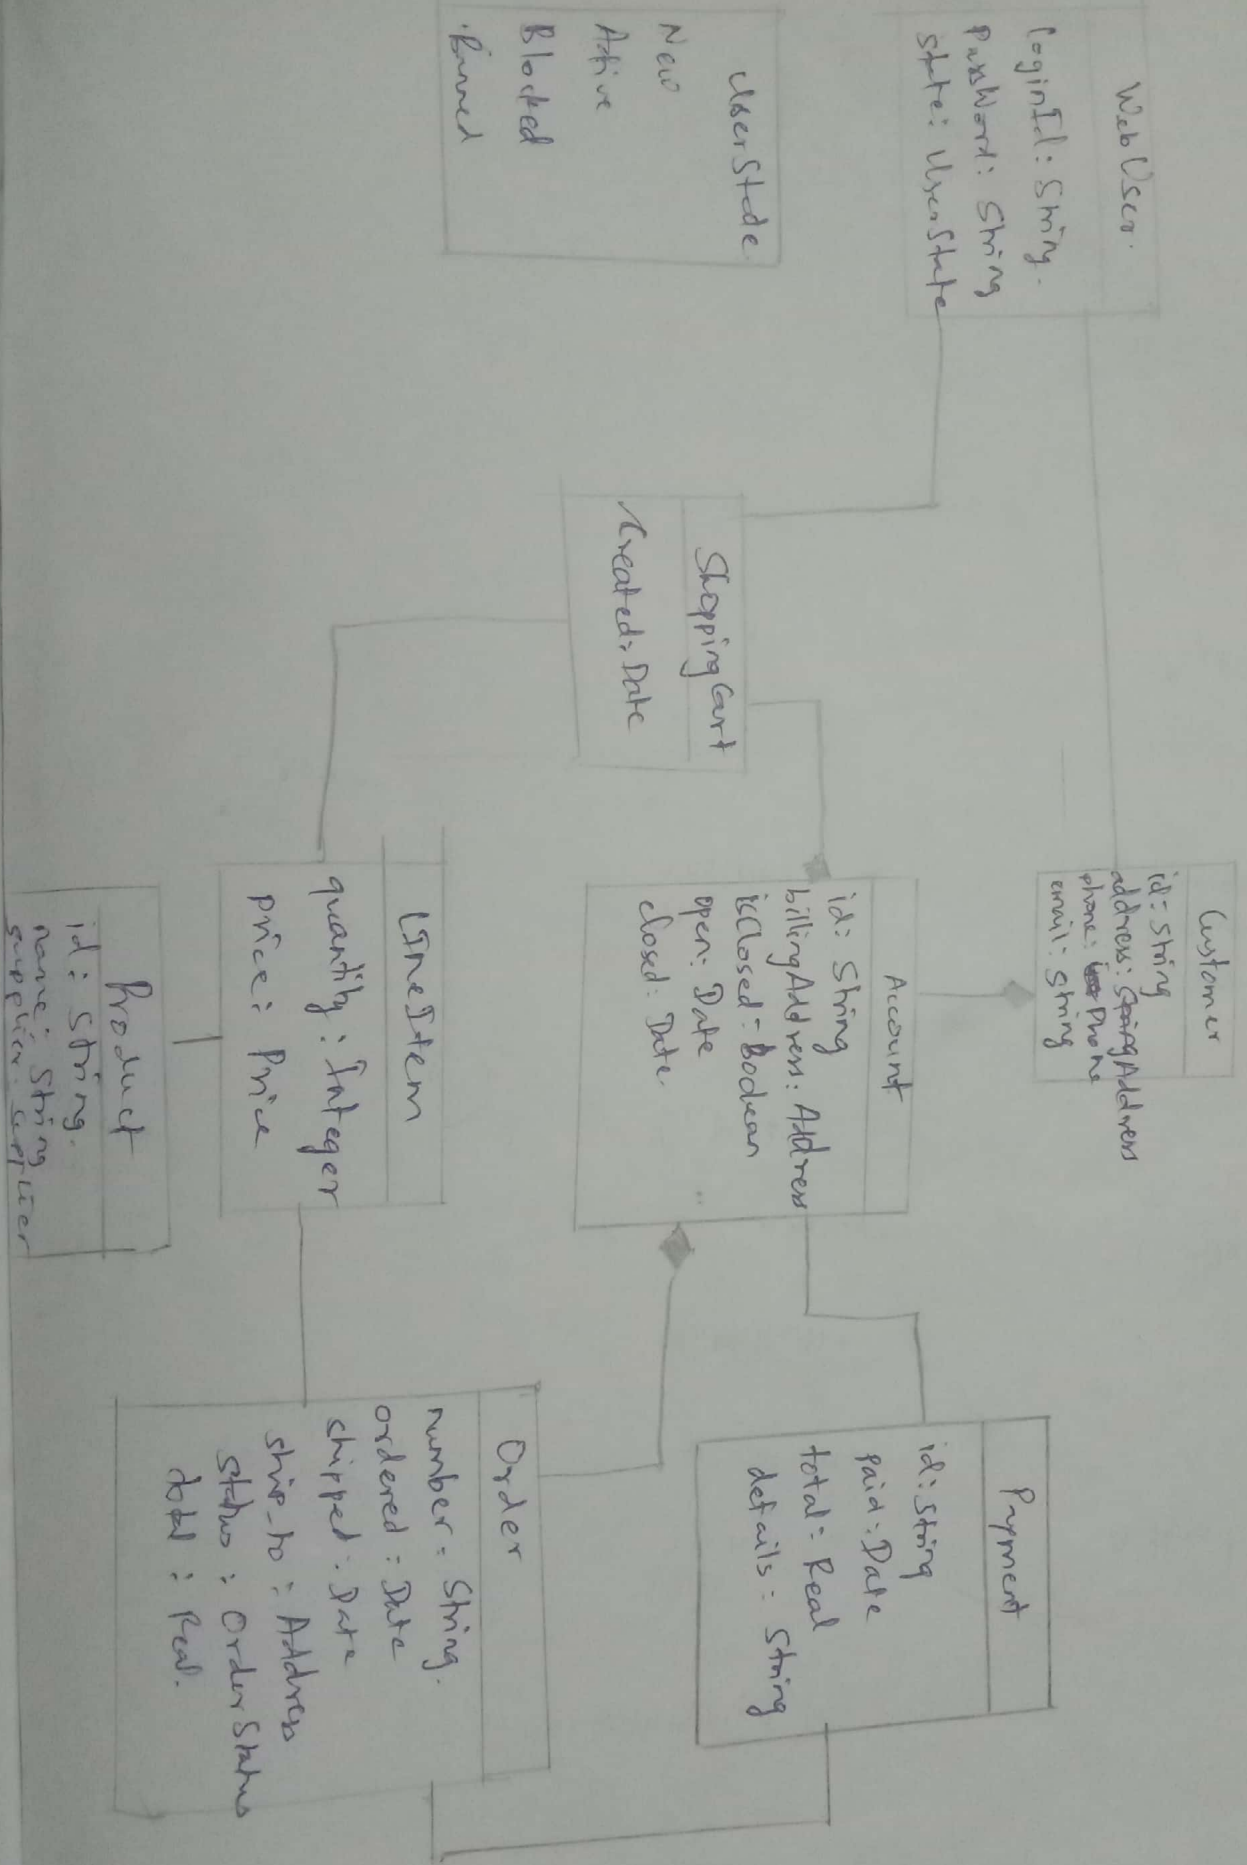 WebUser.
LoginId: String.
PassWord: String
State: UserState
UserState
New
Active
Blocked
Banned
ShoppingCart
Created: Date
Customer
id: String
address: String Address
phone: Phone
email: String
Account
id: String
billingAddress: Address
isClosed: Boolean
open: Date
closed: Date
LineItem
quantity: Integer
price: Price
Product
id: String.
name: String
supplier: supplier
Payment
id: String
paid: Date
total: Real
details: String
Order
number: String.
ordered: Date
shipped: Date
ship_to: Address
status: OrderStatus
total: Real.